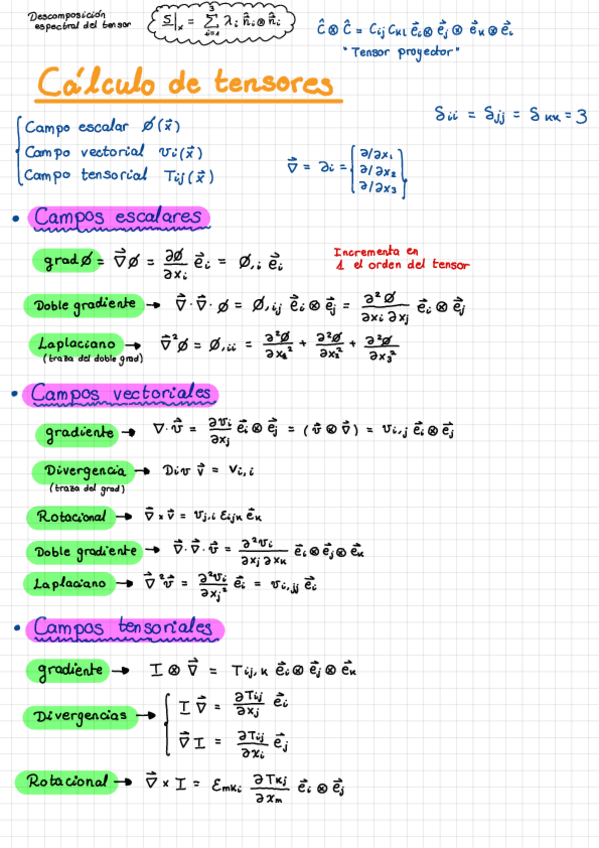 Descomposición
espectral del tensor
S|ₓ = Σ³ᵢ₌₁ λᵢ n̂ᵢ⊗n̂ᵢ
Ĉ⊗Ĉ = Cij Ckl e⃗i⊗e⃗j⊗e⃗k⊗e⃗i
"Tensor proyector"
Cálculo de tensores
δii = δjj = δkk = 3
Campo escalar Ø(x⃗)
Campo vectorial vi(x⃗)
Campo tensorial Tij(x⃗)
∇⃗ = ∂i = { ∂/∂x₁
∂/∂x₂
∂/∂x₃ }
• Campos escalares
grad Ø = ∇⃗Ø = ∂Ø/∂xi e⃗i = Ø,i e⃗i
Incrementa en
1 el orden del tensor
Doble gradiente → ∇⃗·∇⃗·Ø = Ø,ij e⃗i⊗e⃗j = ∂²Ø/∂xi ∂xj e⃗i⊗e⃗j
Laplaciano → ∇⃗²Ø = Ø,ii = ∂²Ø/∂x₁² + ∂²Ø/∂x₂² + ∂²Ø/∂x₃²
(traza del doble grad)
• Campos vectoriales
gradiente → ∇·v⃗ = ∂vi/∂xj e⃗i⊗e⃗j = (v⃗⊗∇⃗) = vi,j e⃗i⊗e⃗j
Divergencia → Div v⃗ = vi,i
(traza del grad)
Rotacional → ∇⃗×v⃗ = vj,i εijk e⃗k
Doble gradiente → ∇⃗·∇⃗·v⃗ = ∂²vi/∂xj ∂xk e⃗i⊗e⃗j⊗e⃗k
Laplaciano → ∇⃗²v⃗ = ∂²vi/∂xj² e⃗i = vi,jj e⃗i
• Campos tensoriales
gradiente → I⊗∇⃗ = Tij,k e⃗i⊗e⃗j⊗e⃗k
Divergencias → { I∇⃗ = ∂Tij/∂xj e⃗i
∇⃗I = ∂Tij/∂xi e⃗j
Rotacional → ∇⃗×I = εmki ∂Tkj/∂xm e⃗i⊗e⃗j